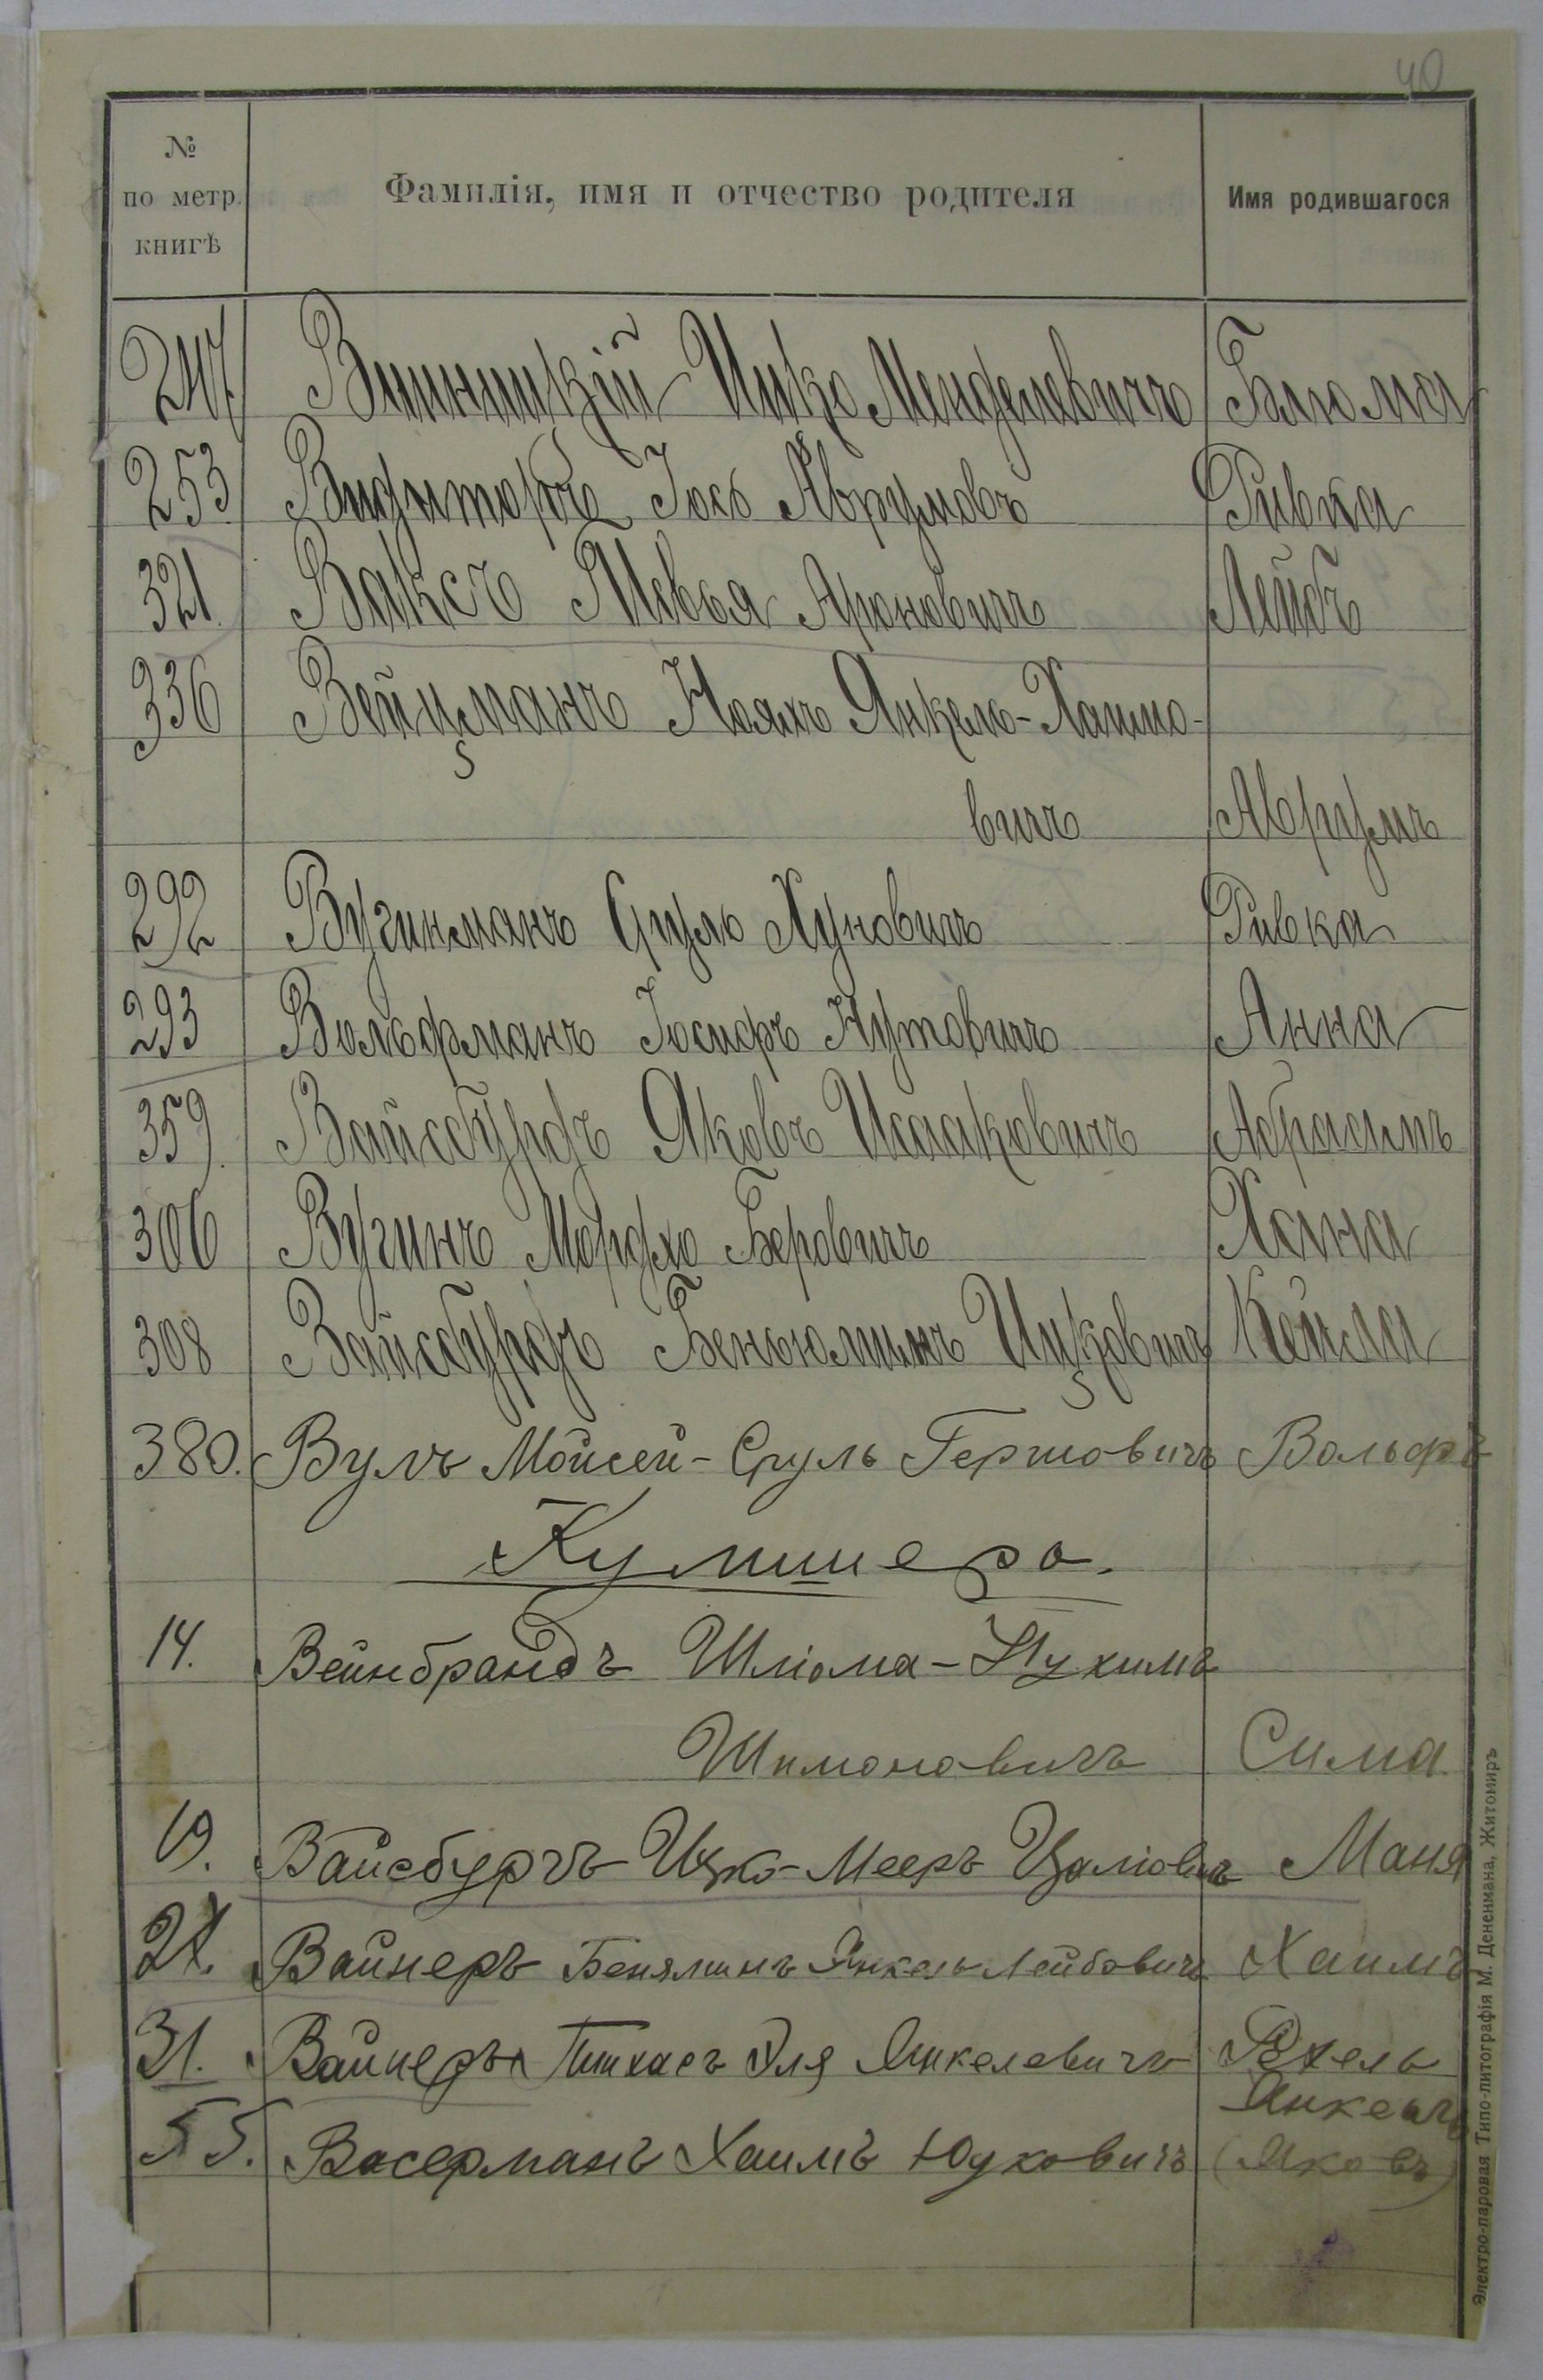 40
№
по метр.
книгѣ
Фамилія, имя и отчество родителя
Имя родившагося
247 Винницкій Ицко Менделевичъ Блюма
253 Іось Аврумовъ Ривка
321. Ваксъ Шевья Ароновичъ Лейбъ
336 Вейцманъ Ноахъ Янкель-Хаимо-
вичъ Аврумъ
292 Вугинманъ Сруль Хуновичъ Ривка
293 Вольфманъ Іосифъ Нутовичъ Анна
359. Вайсбурдъ Яковъ Исааковичъ Абрамъ
306 Вугинъ Мордко Беровичъ Хана
308 Вайсбурдъ Беньюминъ Ицковичъ Кейла
380. Вулъ Мойсей-Сруль Гершовичъ Вольфъ
Кутишера.
14. Вейнбрандъ Шліома-Нухимъ
Шимоновичъ Сима
19. Вайсбургъ Ицко-Мееръ Цаліовичъ Маня
Вайнеръ Бенляминъ Янкель Лейбовичъ Хаимъ
31. Вайнеръ Пинхасъ Эля Янкелевичъ Рехель
Янкель
55. Васерманъ Хаимъ Юуковичъ (Яковъ)
Электро-паровая Типо-литографія М. Дененмана, Житомиръ